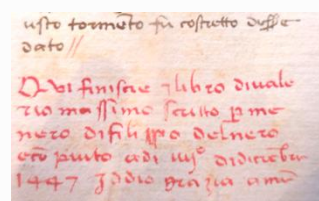 usto tormēto fu costretto di esse
dato //
Qui finiscie il libro di vale
rio massimo scritto p me
nero di filippo del nero
 adi iiijº di diciēbre
1447 Iddio grazia amē